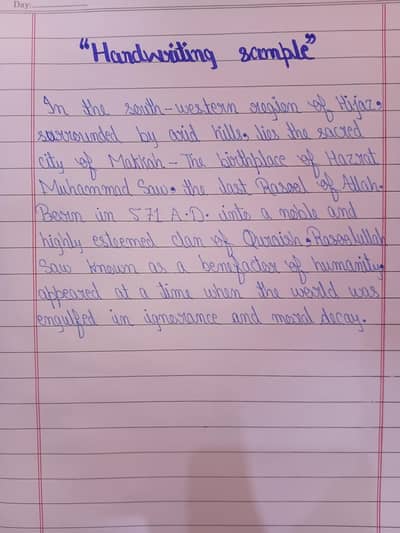 Day:
"Handwriting sample"
In the south-western region of Hijaz.
surrounded by arid hills. lies the sacred
city of Makkah - The birthplace of Hazrat
Muhammad Saw. the last Rasool of Allah.
Born in 571 A.D. into a noble and
highly esteemed clan of Quraish. Rasoolullah
Saw known as a benefactor of humanity.
appeared at a time when the world was
engulfed in ignorance and moral decay.